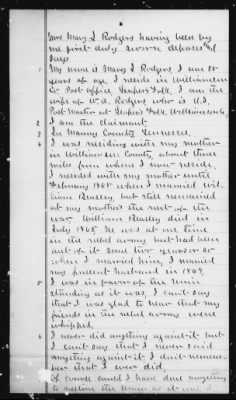 Mrs Mary L Rodgers having been by
me first duly sworn deposes &
Says
1 My name is Mary L Rodgers I am 35
years of age I reside in Williamson
Co. Post office, Leiper's Fork, I am the
wife of W. A. Rodgers who is U.S.
Post Master at Leiper's Fork, Williamson Co,
2 I am the claimant,
3 In Maury County Tennessee.
4 I was residing with my mother
in Williamson County, about three
miles from where I now reside.
I resided with my mother until
February 1865 when I married Wil
liam Beasley, but still remained
at my mothers the rest of the
war. William Beasley died in
July 1865. He was at one time
in the rebel army but had been
out of it some two years or so
when I married him, I married
my present husband in 1869,
5 I was in favor of the Union
standing as it was, I can't say
that I was glad to hear that my
friends in the rebel army were
whipped.
6 I never did anything against it but
I can't say that I never said
anything against it, I don't remem-
ber that I ever did,
of course could I have done anything
to restore the Union as it was I